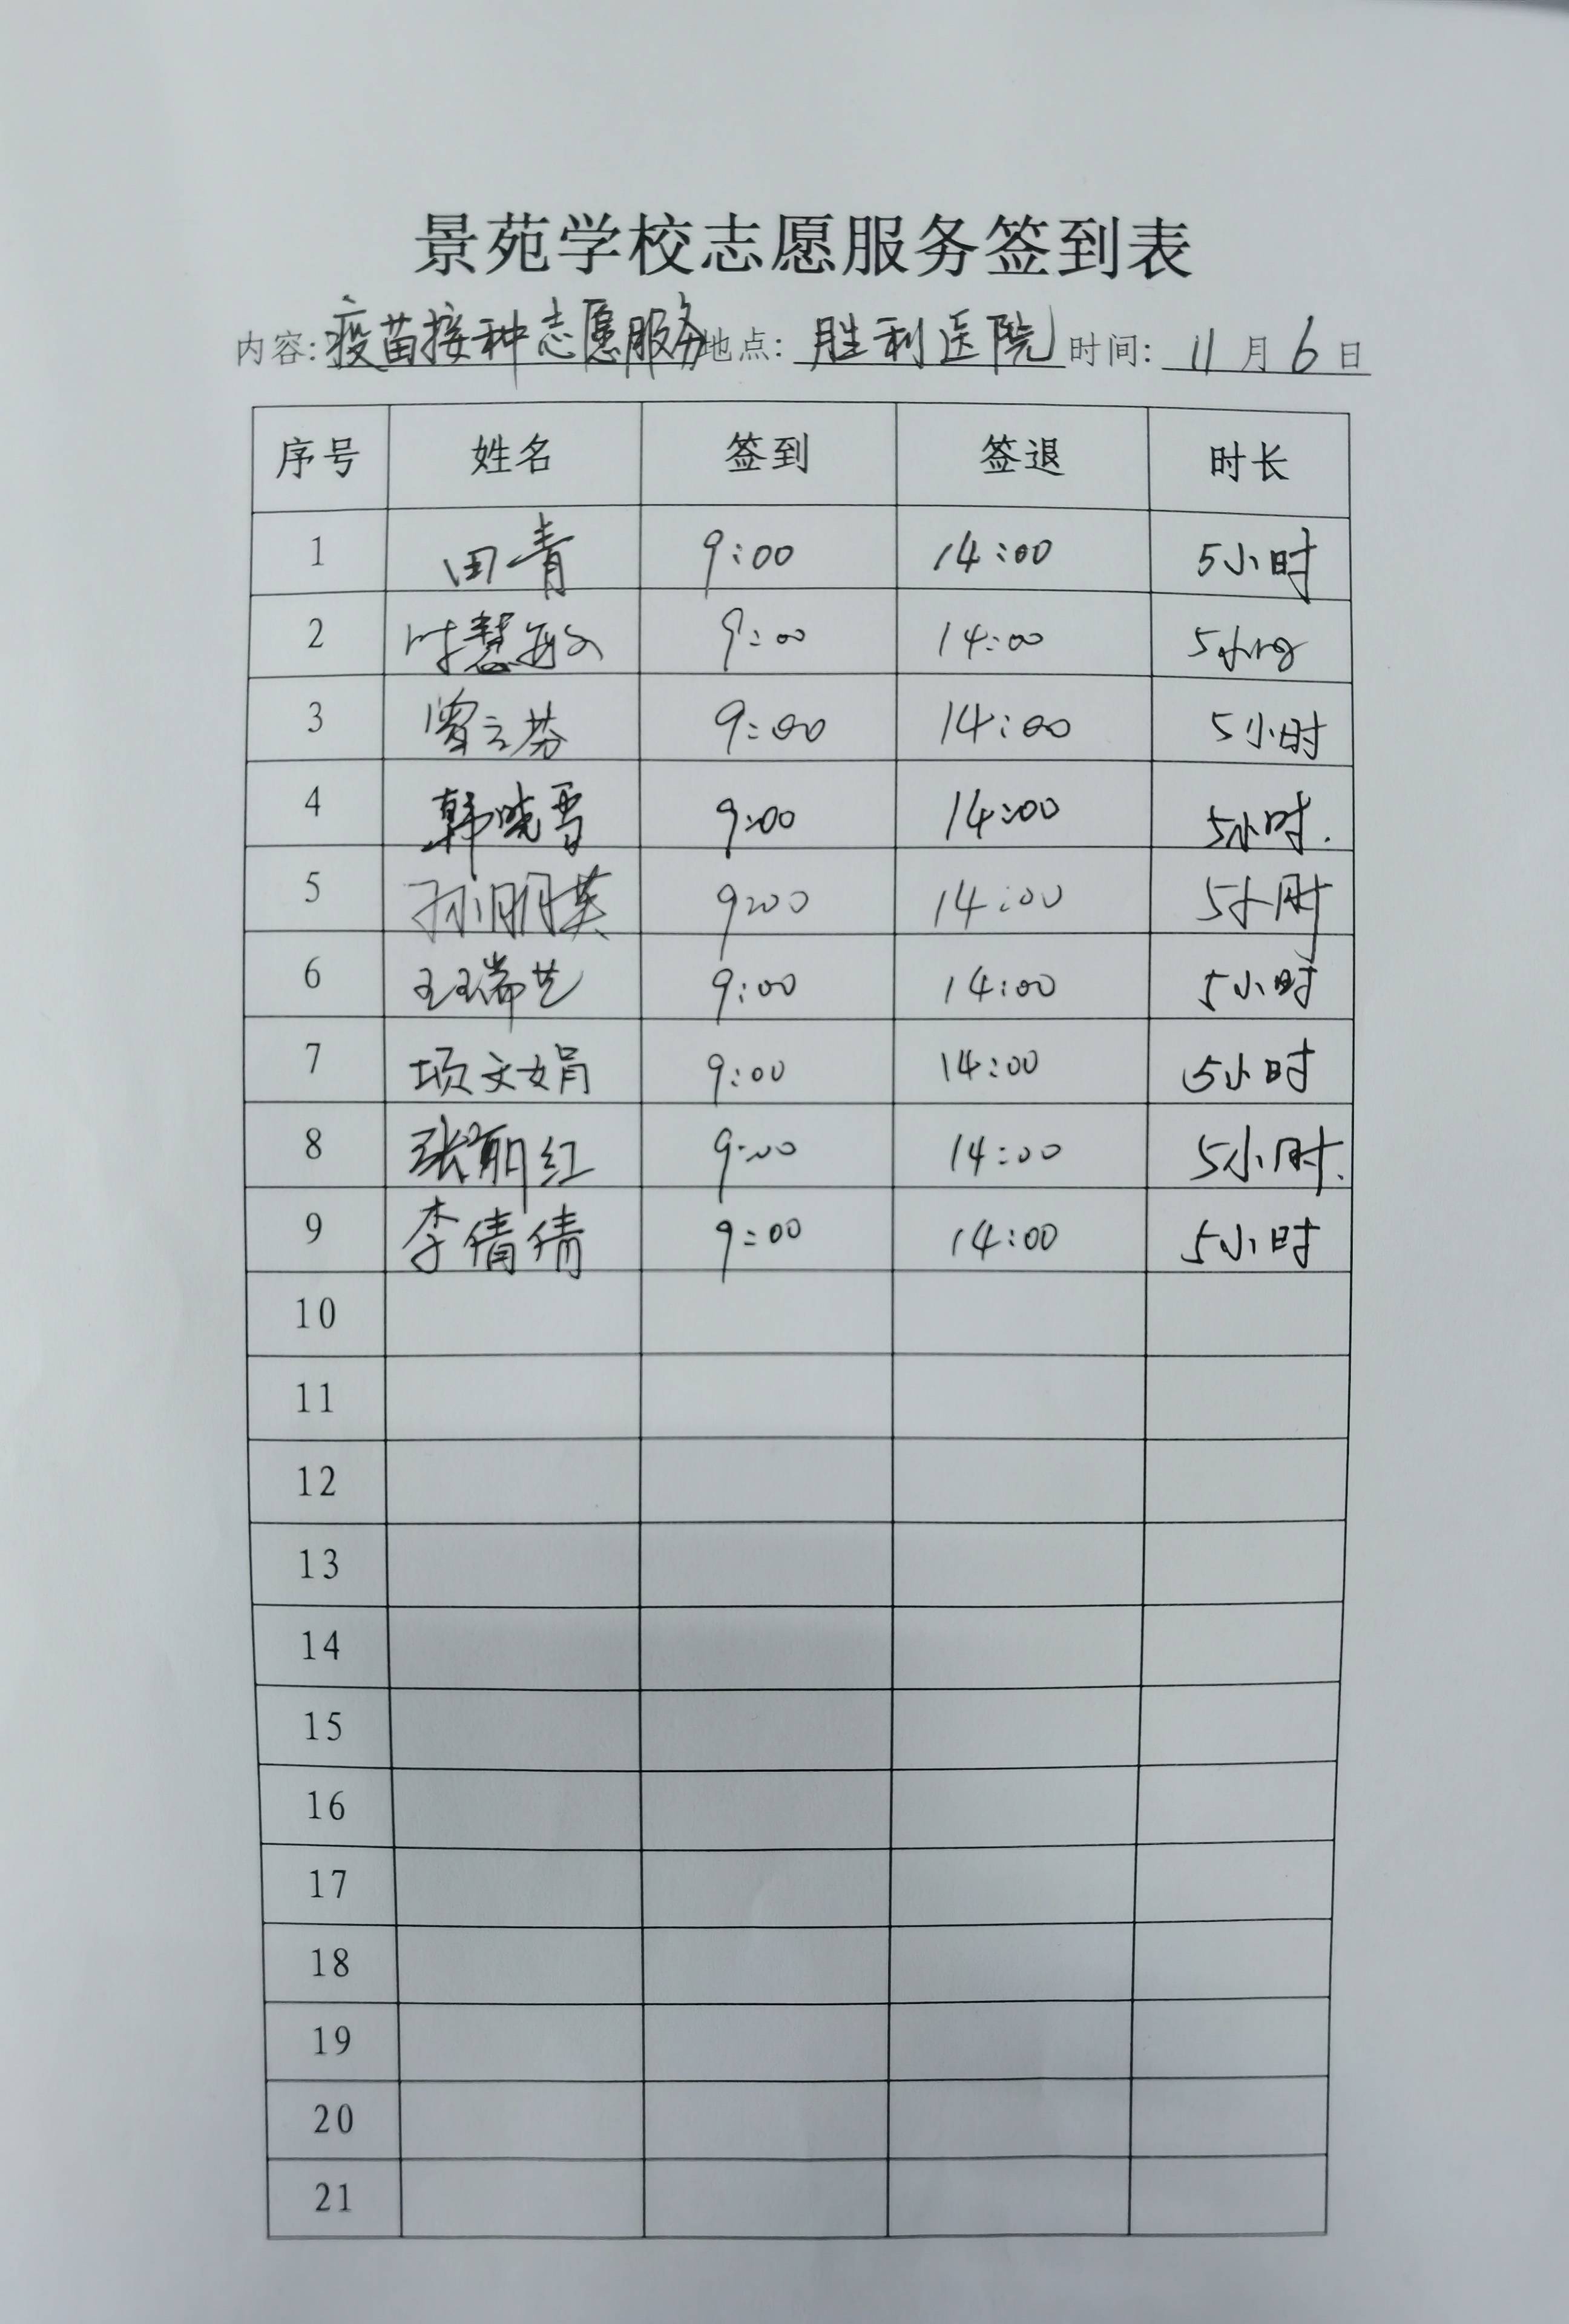 景苑学校志愿服务签到表
内容: 疫苗接种志愿服务 地点: 胜利医院 时间: 11月6日
序号 姓名 签到 签退 时长
1 田青 9:00 14:00 5小时
2 时慧敏 9:00 14:00 5小时
3 曾立芬 9:00 14:00 5小时
4 韩晓雪 9:00 14:00 5小时.
5 孙丽英 9:00 14:00 5小时
6 王瑞艺 9:00 14:00 5小时
7 项文娟 9:00 14:00 5小时
8 张丽红 9:00 14:00 5小时.
9 李倩倩 9:00 14:00 5小时
10
11
12
13
14
15
16
17
18
19
20
21